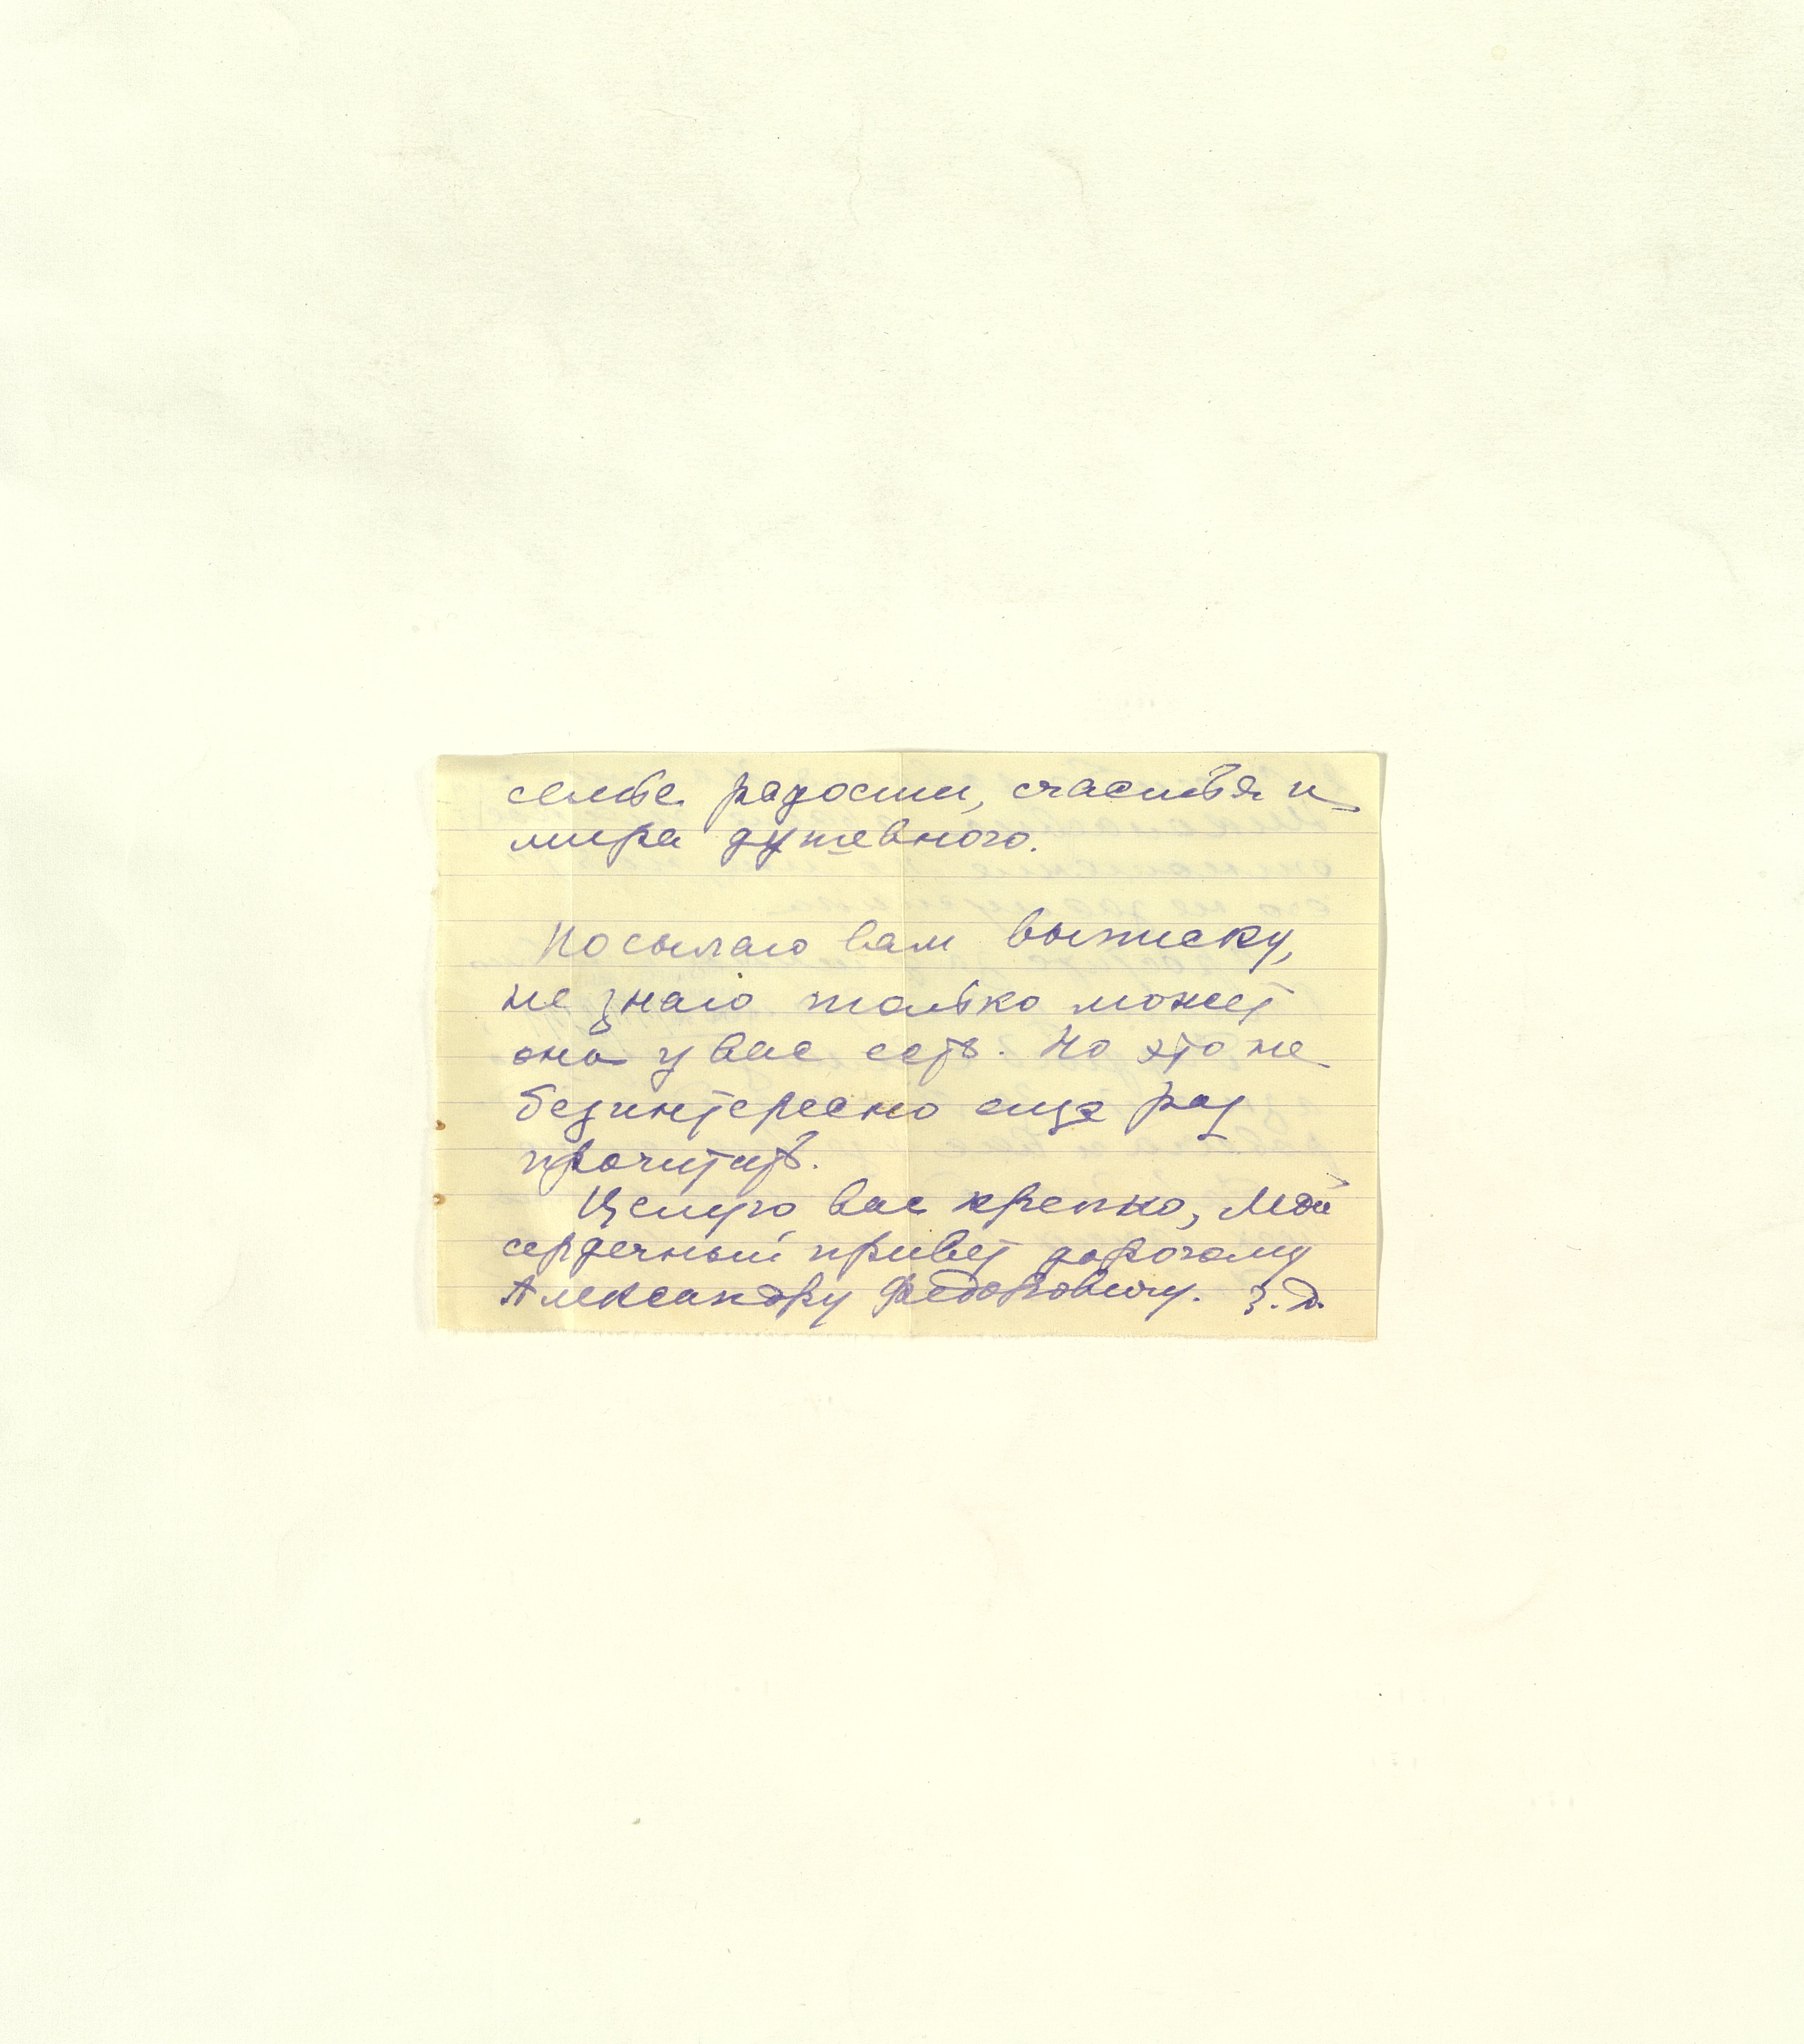 семье радости, счастья и
мира душевного.
Посылаю вам выписку,
не знаю только может
она у вас есть. Но это не
безинтересно еще раз
прочитать.
Целую вас крепко, Мой
сердечный привет дорогому
Александру Федоровичу. З.Д.